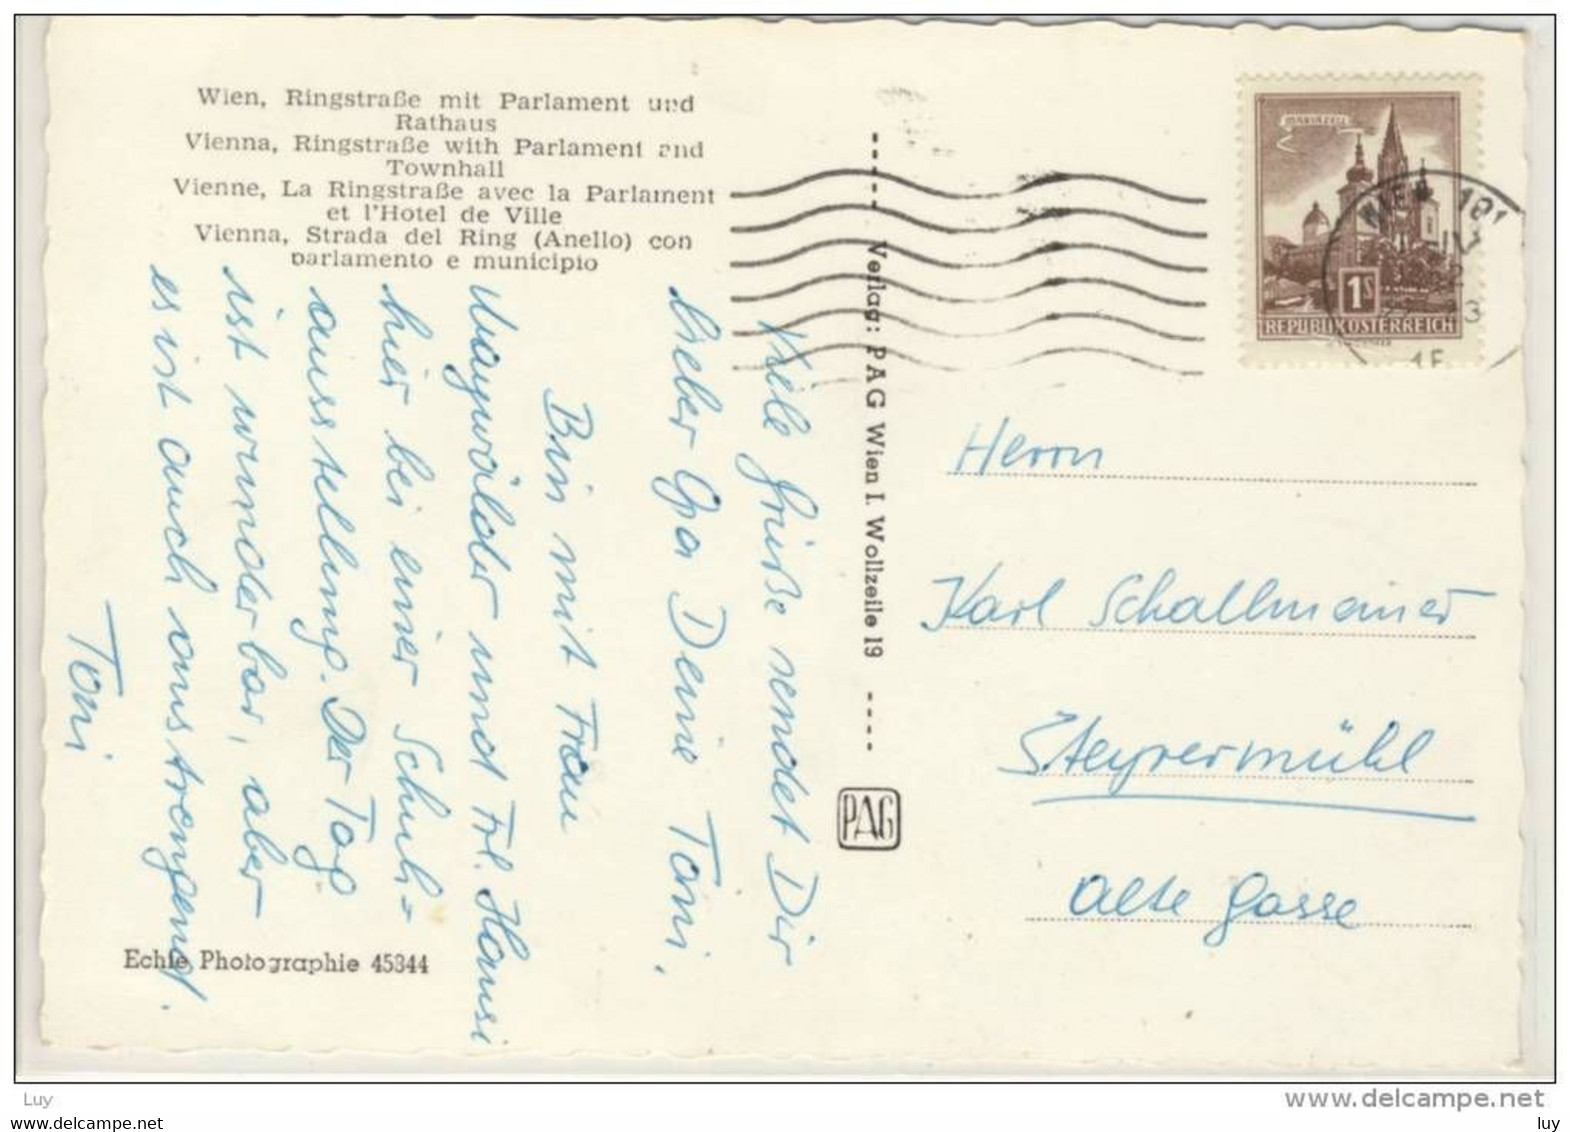 Wien, Ringstraße mit Parlament und
Rathaus
Vienna, Ringstraße with Parlament and
Townhall
Vienne, La Ringstraße avec la Parlament
et l'Hotel de Ville
Vienna, Strada del Ring (Anello) con
parlamento e municipio
Viele Grüße sendet Dir
lieber Opa Deine Toni.
Bin mit Frau
Mayrwälder und Frl. Hansi
hier bei einer Schul=
ausstellung. Der Tag
ist wunderbar, aber
es ist auch anstrengend.
Toni
Echte Photographie 45344
Verlag: PAG Wien I. Wollzeile 19
PAG
MARIAZELL
1S
REPUBLIK ÖSTERREICH
WIEN 101
Herrn
Karl Schallmeiner
Steyrermühl
Alte Gasse
Luy
www.delcampe.net
luy www.delcampe.net
luy